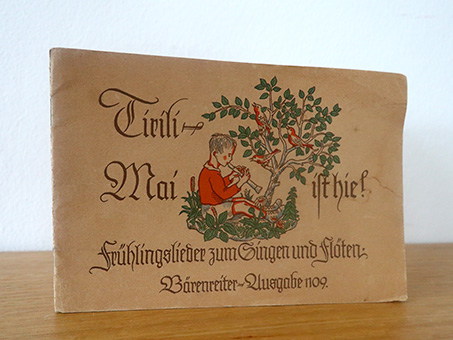 Tirili–
Mai ist hie!
Frühlingslieder zum Singen und Flöten.
Bärenreiter-Ausgabe 1109.